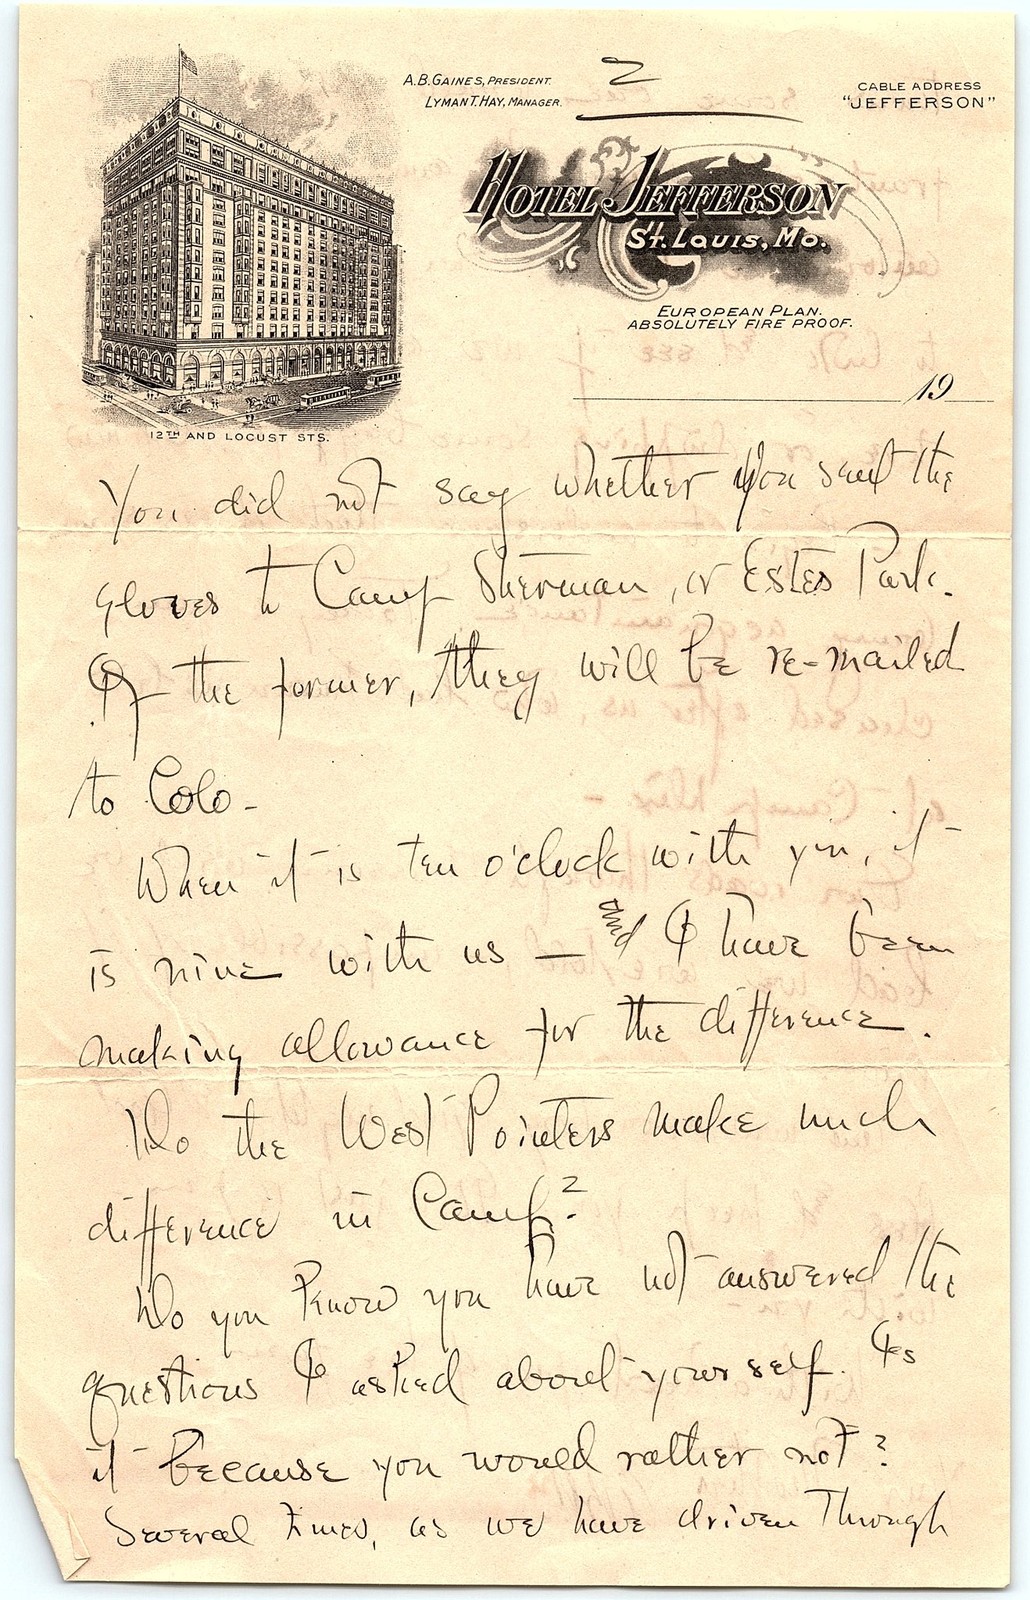 2
A.B. GAINES, PRESIDENT.
LYMAN T. HAY, MANAGER.
CABLE ADDRESS
"JEFFERSON"
HOTEL JEFFERSON
ST. LOUIS, MO.
EUROPEAN PLAN.
ABSOLUTELY FIRE PROOF.
19
12TH AND LOCUST STS.
You did not say whether you sent the
gloves to Camp Sherman, or Estes Park.
If the former, they will be re-mailed
to Colo-
When it is ten o'clock with you, it
is nine with us — and I have been
making allowance for the difference.
Do the West Pointers make much
difference in Camp?
Do you know you have not answered the
questions I asked about yourself. Is
it because you would rather not?
Several times, as we have driven through